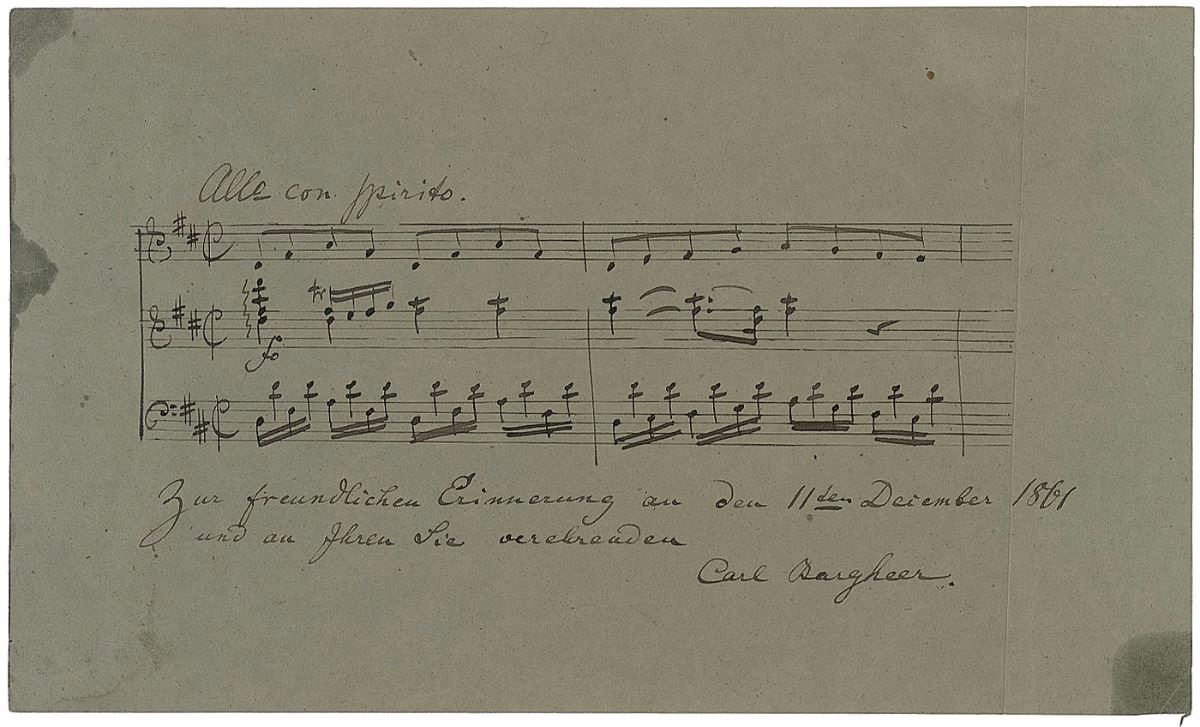 Allo con spirito.
fo
Zur freundlichen Erinnerung an den 11ten December 1861
und an Ihren Sie verehrenden
Carl Bargheer.